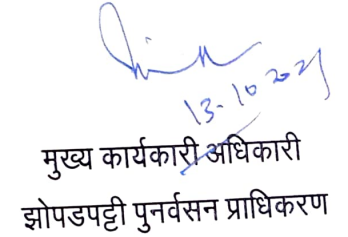 13-10-2021
मुख्य कार्यकारी अधिकारी
झोपडपट्टी पुनर्वसन प्राधिकरण